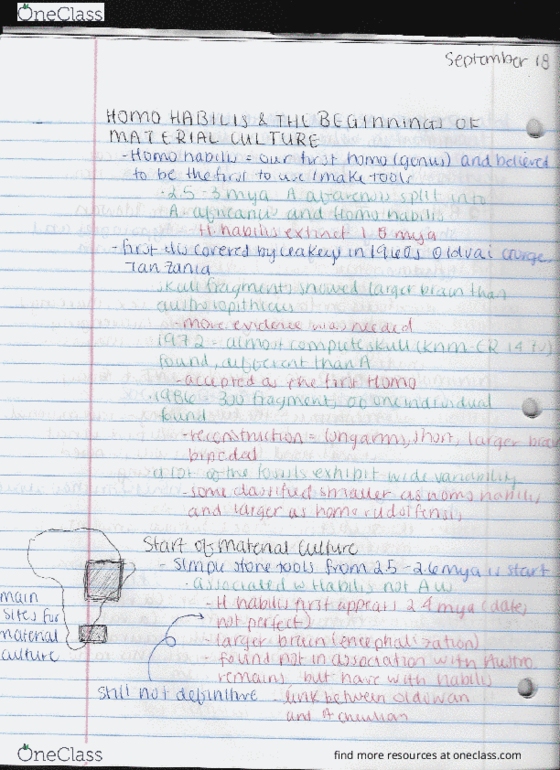 OneClass
September 18
HOMO HABILIS & THE BEGINNINGS OF
MATERIAL CULTURE
- Homo habilis = our first homo (genus) and believed
to be the first to use/make tools
· 2.5-3 mya A afarensis split into
A africanus and Homo habilis
H habilis extinct 1.8 mya
- first discovered by leakeys in 1960s Olduvai Gorge
Tanzania
skull fragments showed larger brain than
- more evidence was needed
1972 = almost complete skull (KNM-ER 1470)
found, different than A
- accepted as the first Homo
· 1986 = 300 fragments of one individual
found
- reconstruction = long arms, short, larger brain
bipedal
a lot of the fossils exhibit wide variability
- some classified smaller as homo habilis
and larger as homo rudolfensis
Start of Material Culture
- Simple stone tools from 2.5-2.6 mya is start
- associated w Habilis not Aus
- H habilis first appears 2.4 mya (dates
not perfect)
- larger brain (encephalization)
- found not in association with Austro
remains, but have with habilis
main
sites for
material
culture
still not definitive
link between oldowan
and Acheulian
OneClass
find more resources at oneclass.com